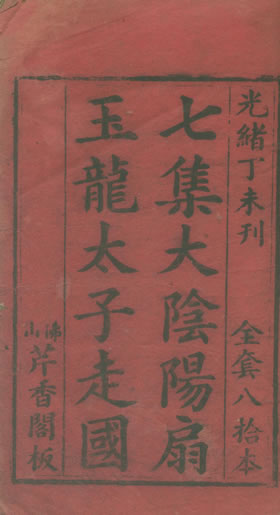 光緒丁未刊　全套八拾本
七集大陰陽扇
玉龍太子走國
佛山芹香閣板